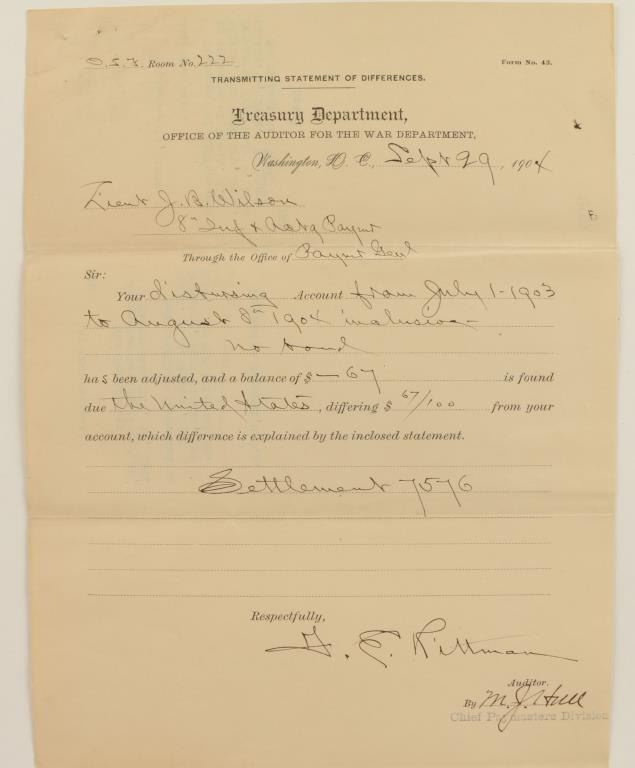 O.S.F. Room No. 222 Form No. 43.
TRANSMITTING STATEMENT OF DIFFERENCES.
Treasury Department,
OFFICE OF THE AUDITOR FOR THE WAR DEPARTMENT,
Washington, D. C., Sept 29, 1904
Lieut J. B. Wilson
8" Inf & Astg Paymr
Through the Office of Paymr Genl
Sir:
Your disbursing Account from July 1-1903
to August 8th 1904 inclusive
no bond
has been adjusted, and a balance of $ — 67 is found
due the United States, differing $ 67/100 from your
account, which difference is explained by the inclosed statement.
Settlement 7576
Respectfully,
F. E. Rittman
Auditor.
By M. J. Hull
Chief Paymasters Division